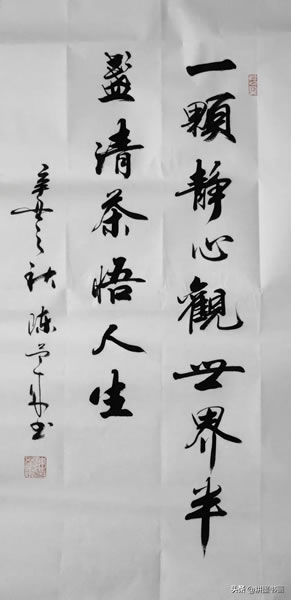 一顆靜心觀世界半
盞清茶悟人生
辛丑之秋 陈
头条 @